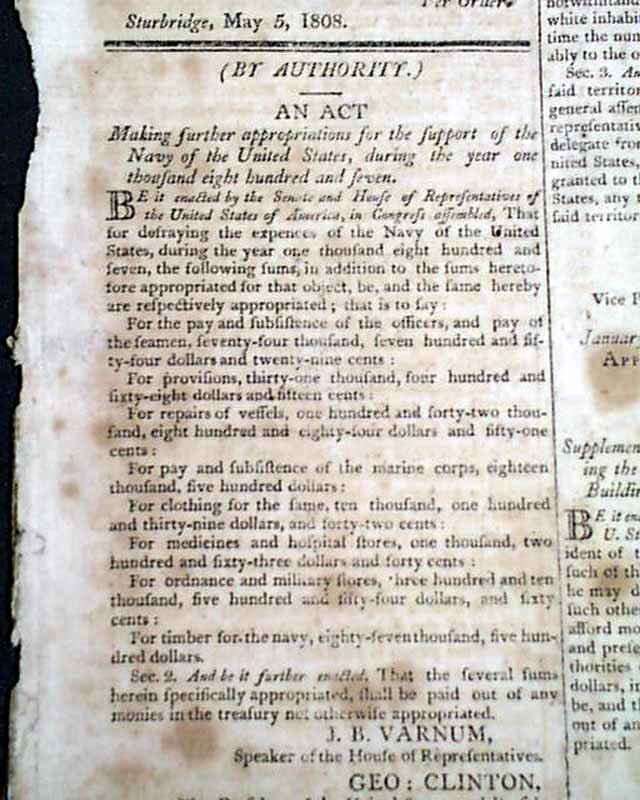 Per Order.
Sturbridge, May 5, 1808.
(BY AUTHORITY.)
AN ACT
Making further appropriations for the ſupport of the
Navy of the United States, during the year one
thouſand eight hundred and ſeven.
BE it enacted by the Senate and Houſe of Repreſentatives of
the United States of America, in Congreſs aſſembled, That
for defraying the expences of the Navy of the United
States, during the year one thouſand eight hundred and
ſeven, the following ſums, in addition to the ſums hereto-
fore appropriated for that object, be, and the ſame hereby
are reſpectively appropriated; that is to ſay:
For the pay and ſubſiſtence of the officers, and pay of
the ſeamen, ſeventy-four thouſand, ſeven hundred and fif-
ty-four dollars and twenty-nine cents:
For proviſions, thirty-one thouſand, four hundred and
ſixty-eight dollars and fifteen cents:
For repairs of veſſels, one hundred and forty-two thou-
ſand, eight hundred and eighty-four dollars and fifty-one
cents:
For pay and ſubſiſtence of the marine corps, eighteen
thouſand, five hundred dollars:
For clothing for the ſame, ten thouſand, one hundred
and thirty-nine dollars, and forty-two cents:
For medicines and hoſpital ſtores, one thouſand, two
hundred and ſixty-three dollars and forty cents:
For ordnance and military ſtores, three hundred and ten
thouſand, five hundred and fifty-four dollars, and ſixty
cents:
For timber for the navy, eighty-ſeven thouſand, five hun-
dred dollars.
Sec. 2. And be it further enacted, That the ſeveral ſums
herein ſpecifically appropriated, ſhall be paid out of any
monies in the treaſury not otherwiſe appropriated.
J. B. VARNUM,
Speaker of the Houſe of Repreſentatives.
GEO: CLINTON,
white inhabi
time the num
ably to the o
Sec. 3. And
ſaid territor
general aſſem
repreſentativ
delegate from
nited States,
granted to th
States, any t
ſaid territor
Vice P
January
APP
Supplemen
ing the
Buildin
BE it ena
U. St
ident of t
ſuch of th
he may d
ſuch othe
afford mo
and preſe
thorities
dollars, in
be, and th
out of an
priated.